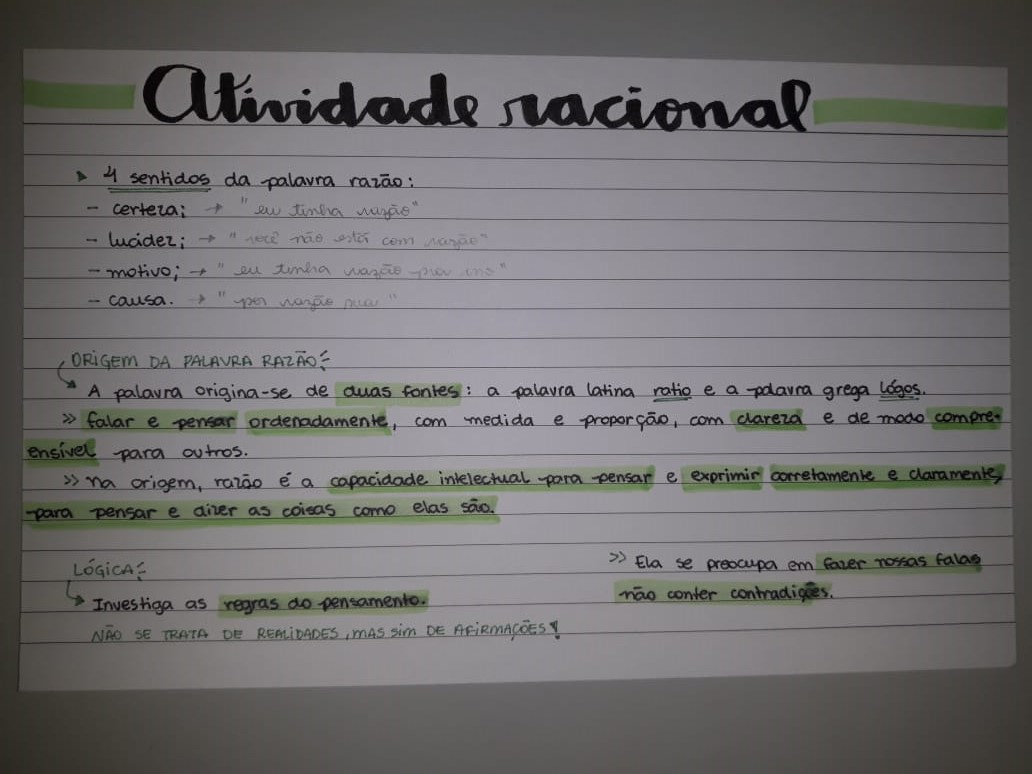 Atividade racional
4 sentidos da palavra razão:
- certeza; → "eu tinha razão"
- lucidez; → "você não está com razão"
- motivo; → "eu tinha razão pra isso"
- causa. → "por razão sua"
ORIGEM DA PALAVRA RAZÃO:
A palavra origina-se de duas fontes: a palavra latina ratio e a palavra grega lógos.
>> falar e pensar ordenadamente, com medida e proporção, com clareza e de modo compre-
ensível para outros.
>> na origem, razão é a capacidade intelectual para pensar e exprimir corretamente e claramente,
para pensar e dizer as coisas como elas são.
LÓGICA:
Investiga as regras do pensamento.
NÃO SE TRATA DE REALIDADES, MAS SIM DE AFIRMAÇÕES!
>> Ela se preocupa em fazer nossas falas
não conter contradições.